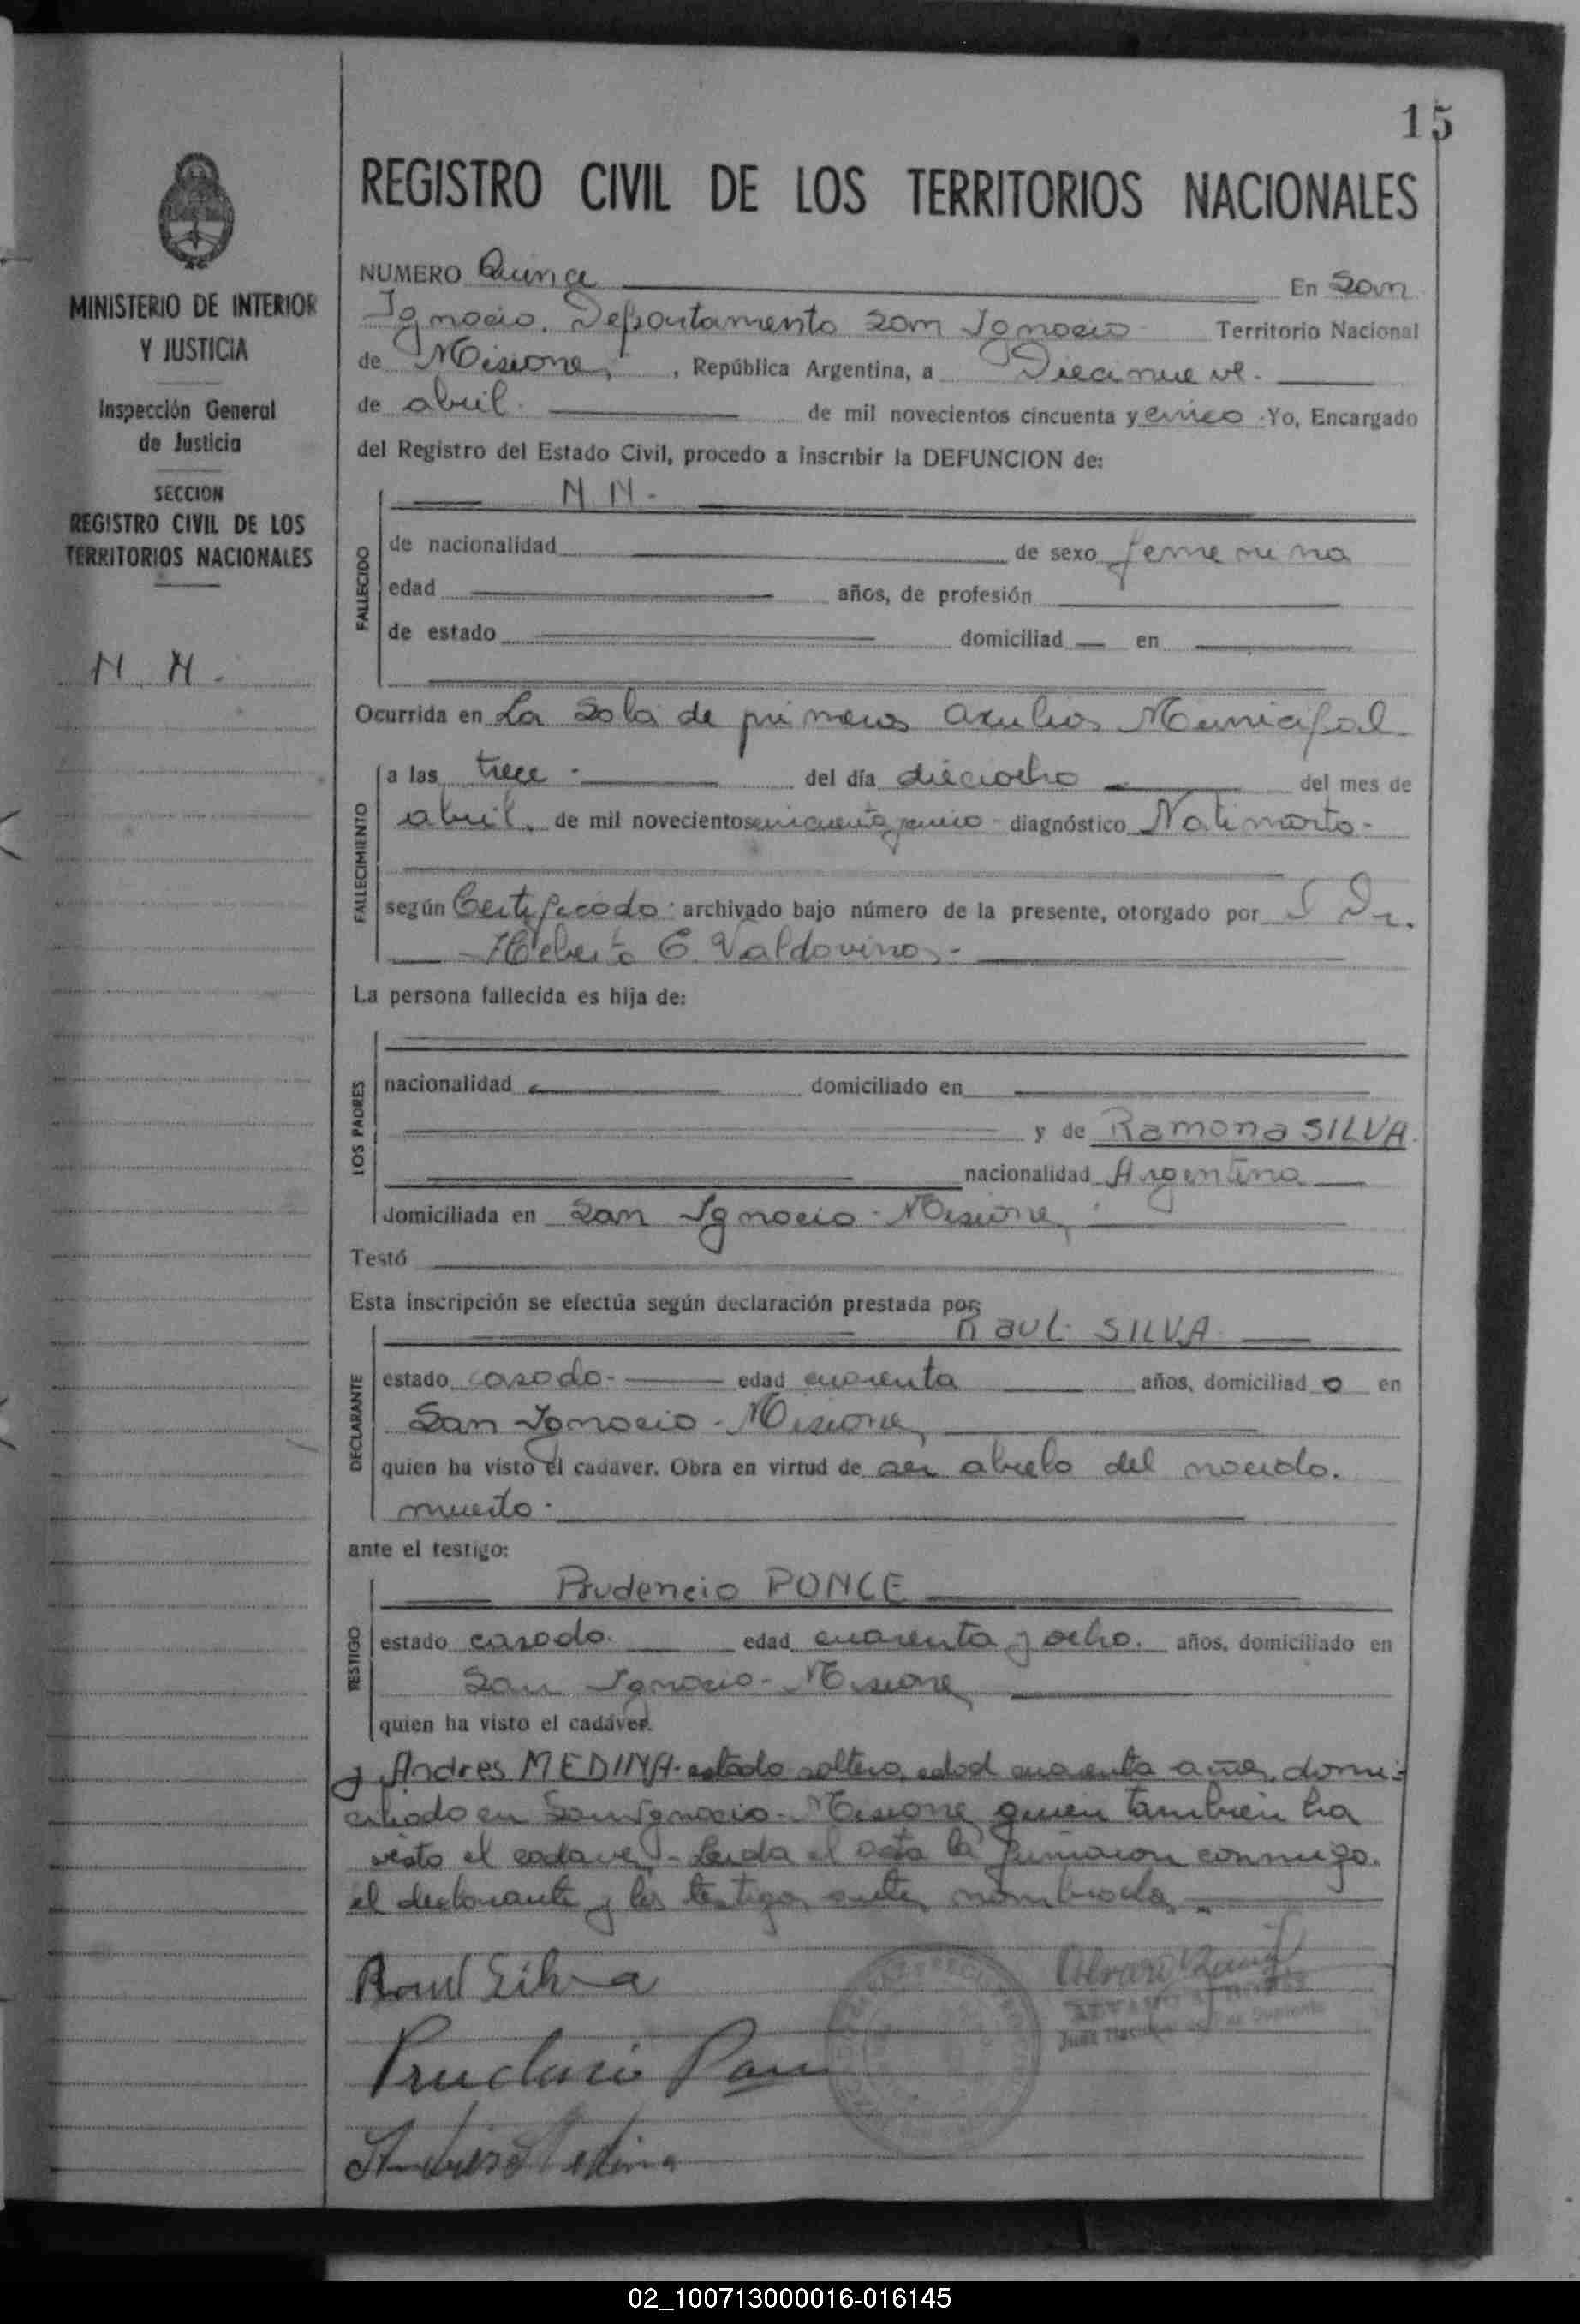 15
REGISTRO CIVIL DE LOS TERRITORIOS NACIONALES
MINISTERIO DE INTERIOR
Y JUSTICIA
Inspección General
de Justicia
SECCION
REGISTRO CIVIL DE LOS
TERRITORIOS NACIONALES
N. N.
NUMERO Quince En San
Ignacio. Departamento San Ignacio Territorio Nacional
de Misiones, República Argentina, a Diecinueve.
de abril. de mil novecientos cincuenta y cinco. Yo, Encargado
del Registro del Estado Civil, procedo a inscribir la DEFUNCION de:
N. N. -
FALLECIDO
de nacionalidad de sexo femenina
edad años, de profesión
de estado domiciliad en
Ocurrida en La Sala de primeros auxilios Municipal
FALLECIMIENTO
a las trece - del día dieciocho del mes de
abril, de mil novecientos cincuenta y cinco - diagnóstico Natimorto -
según Certificado archivado bajo número de la presente, otorgado por Dr.
Heberto C. Valdovinos -
La persona fallecida es hija de:
LOS PADRES
nacionalidad domiciliado en
y de Ramona SILVA.
nacionalidad Argentina
domiciliada en San Ignacio - Misiones
Testó
Esta inscripción se efectúa según declaración prestada por:
Raul SILVA
DECLARANTE
estado casado - edad cuarenta años, domiciliad o en
San Ignacio - Misiones
quien ha visto el cadáver. Obra en virtud de ser abuelo del nacido.
muerto -
ante el testigo:
Prudencio PONCE
TESTIGO
estado casado. edad cuarenta y ocho. años, domiciliado en
San Ignacio - Misiones
quien ha visto el cadáver.
y Andres MEDINA - estado soltero, edad cuarenta años, domi-
ciliado en San Ignacio - Misiones quien también ha
visto el cadaver - Leida el acta la firmaron conmigo.
el declarante y los testigos antes nombrados.
Raul Silva
Prudencio Ponce
Andres Medina
02_100713000016-016145